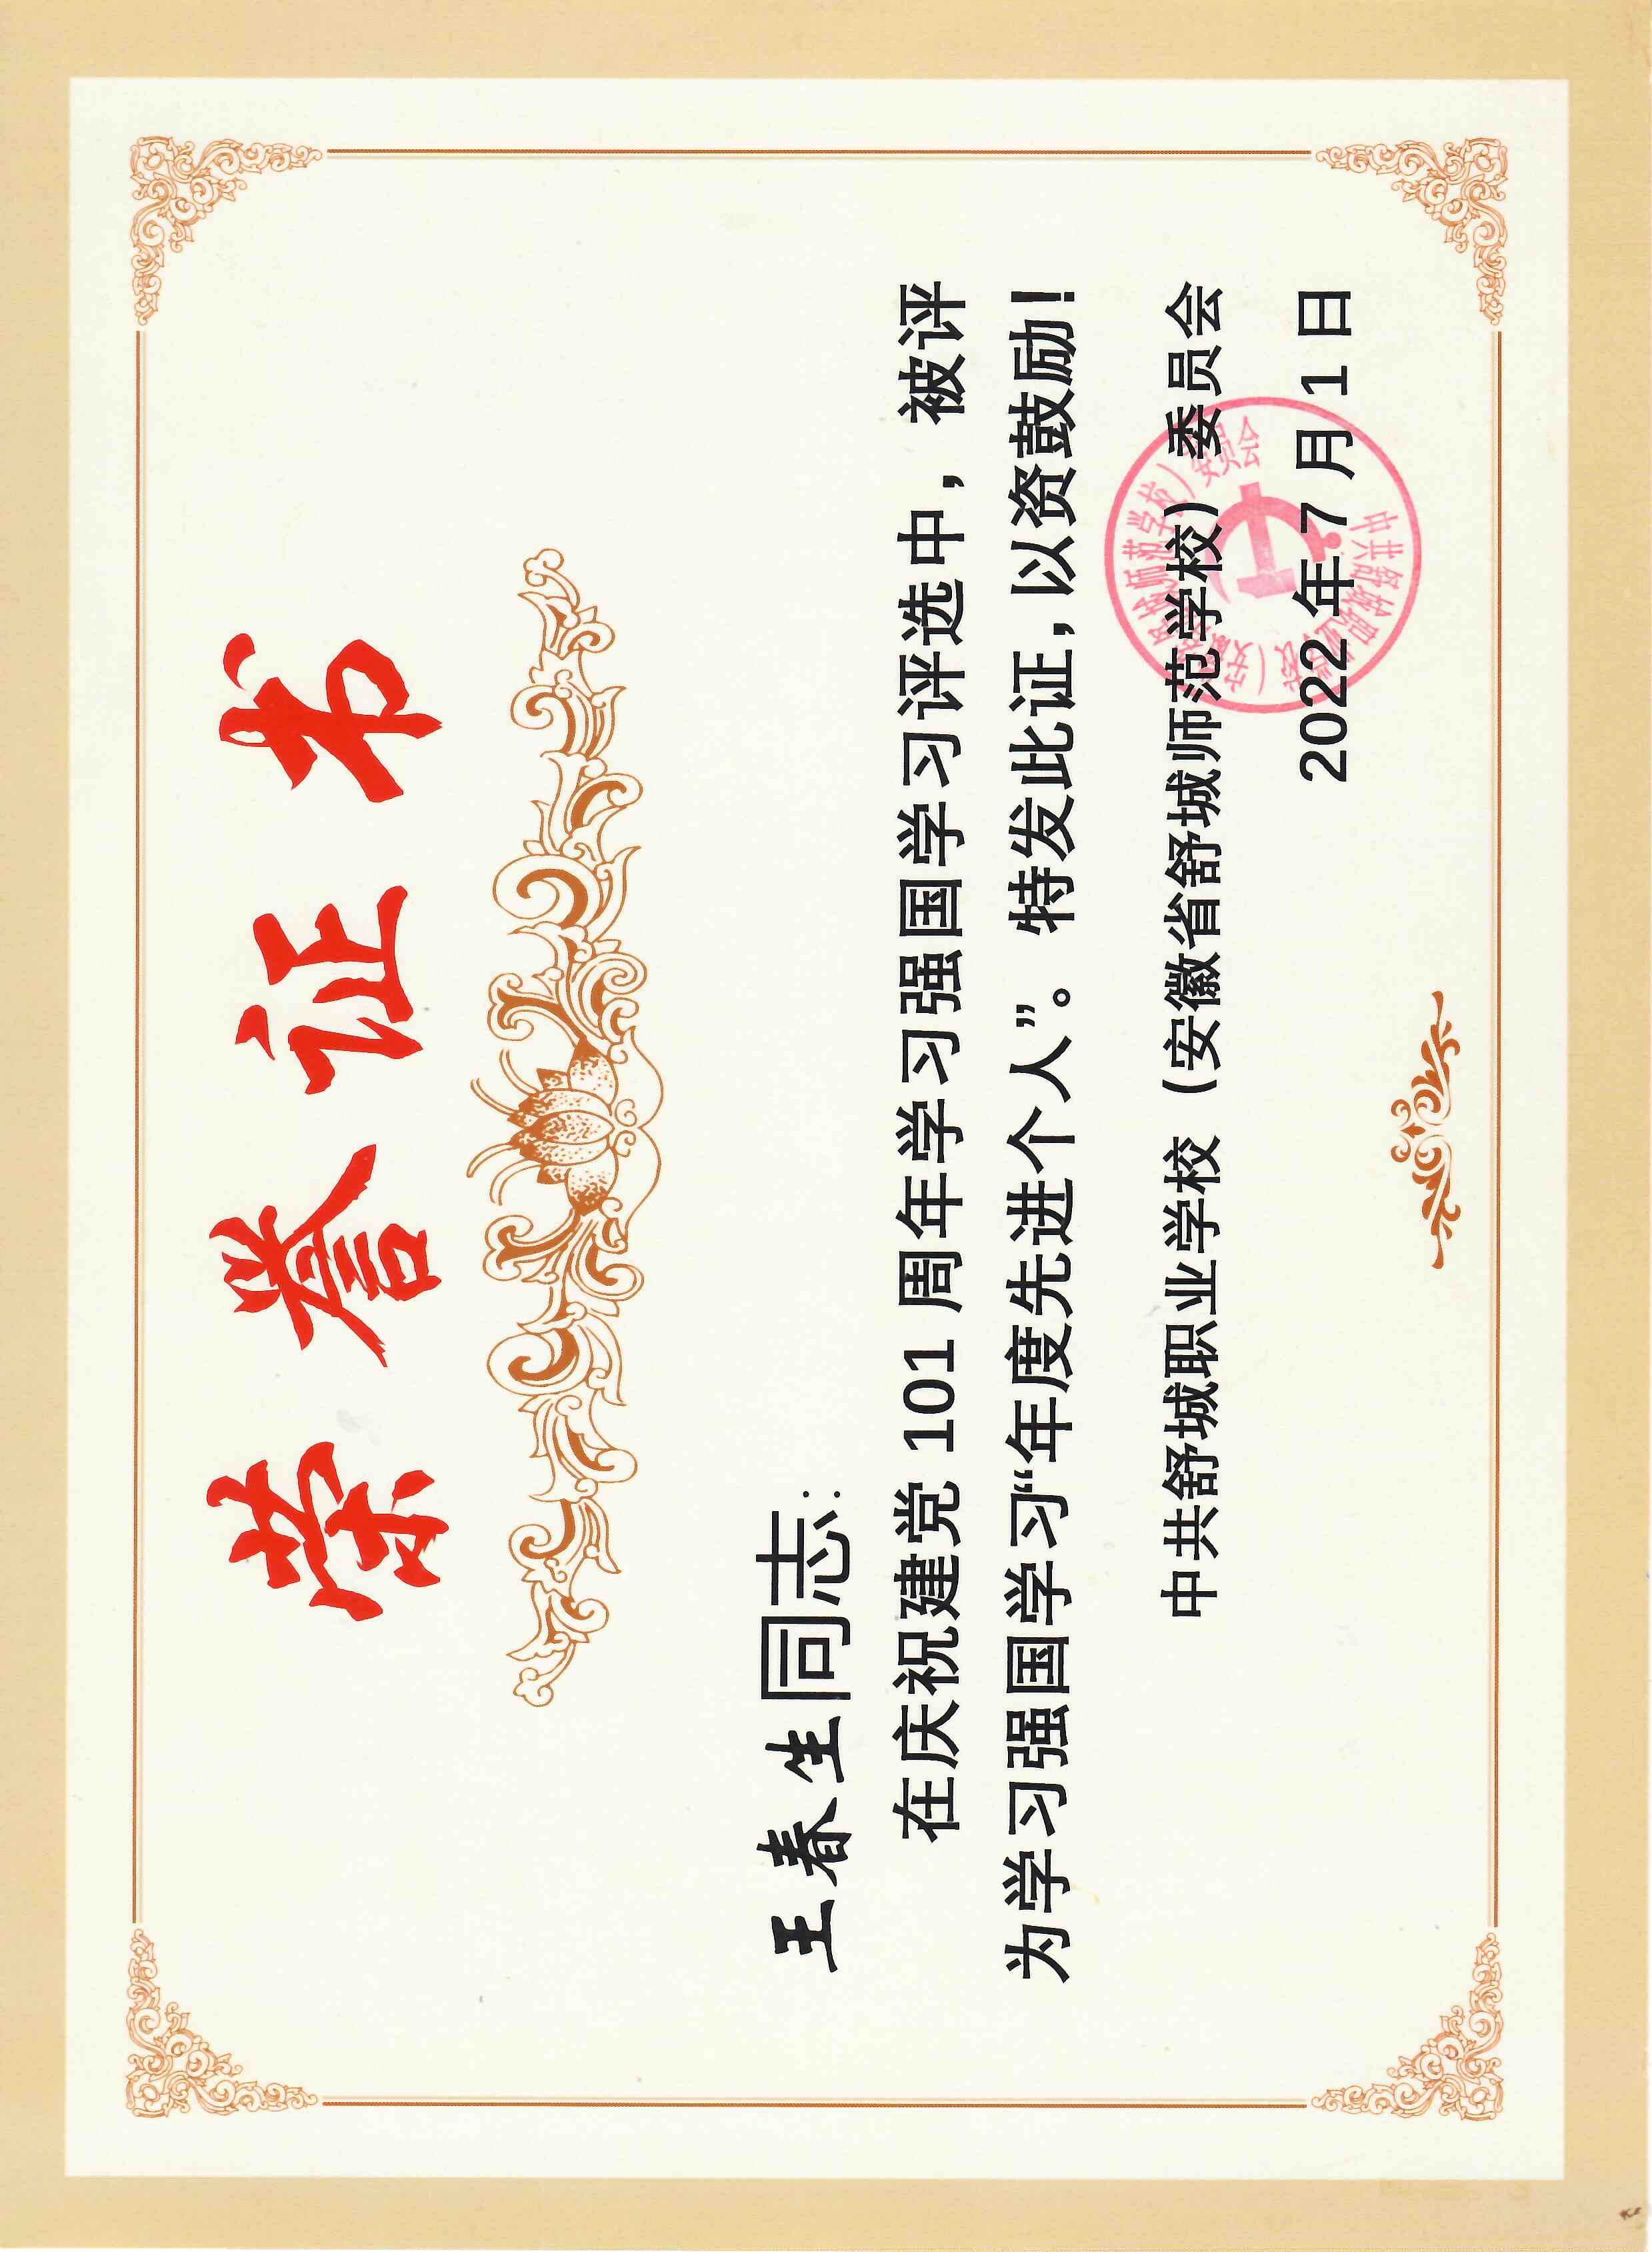 荣誉证书
王春生同志:
在庆祝建党 101 周年学习强国学习评选中，被评
为学习强国学习“年度先进个人”。特发此证，以资鼓励！
中共舒城职业学校（安徽省舒城师范学校）委员会
2022 年 7 月 1 日
中共舒城职业学校（安徽省舒城师范学校）委员会